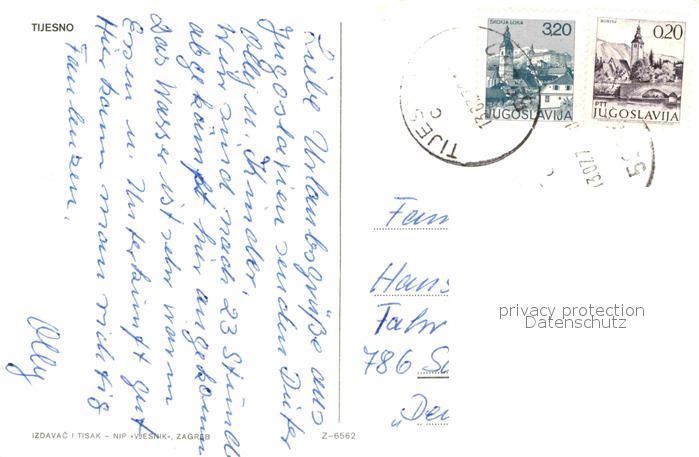 TIJESNO
Liebe Urlaubsgrüße aus
Jugoslavien senden Dieter
Olly u. Kinder.
Wir sind nach 23 Stunden
abgekämpft hir angekomm
Das Wasser ist sehr warm
Essen u. Unterkunft gut
Hier kann man richtig
Faulenzen.
Olly
IZDAVAČ I TISAK – NIP »VJESNIK«, ZAGREB
Z-6562
ŠKOFJA LOKA
3,20
JUGOSLAVIJA
BOHINJ
0,20
PTT
JUGOSLAVIJA
TIJES
Fam
Hans
Fahr
786 S
privacy protection
Datenschutz